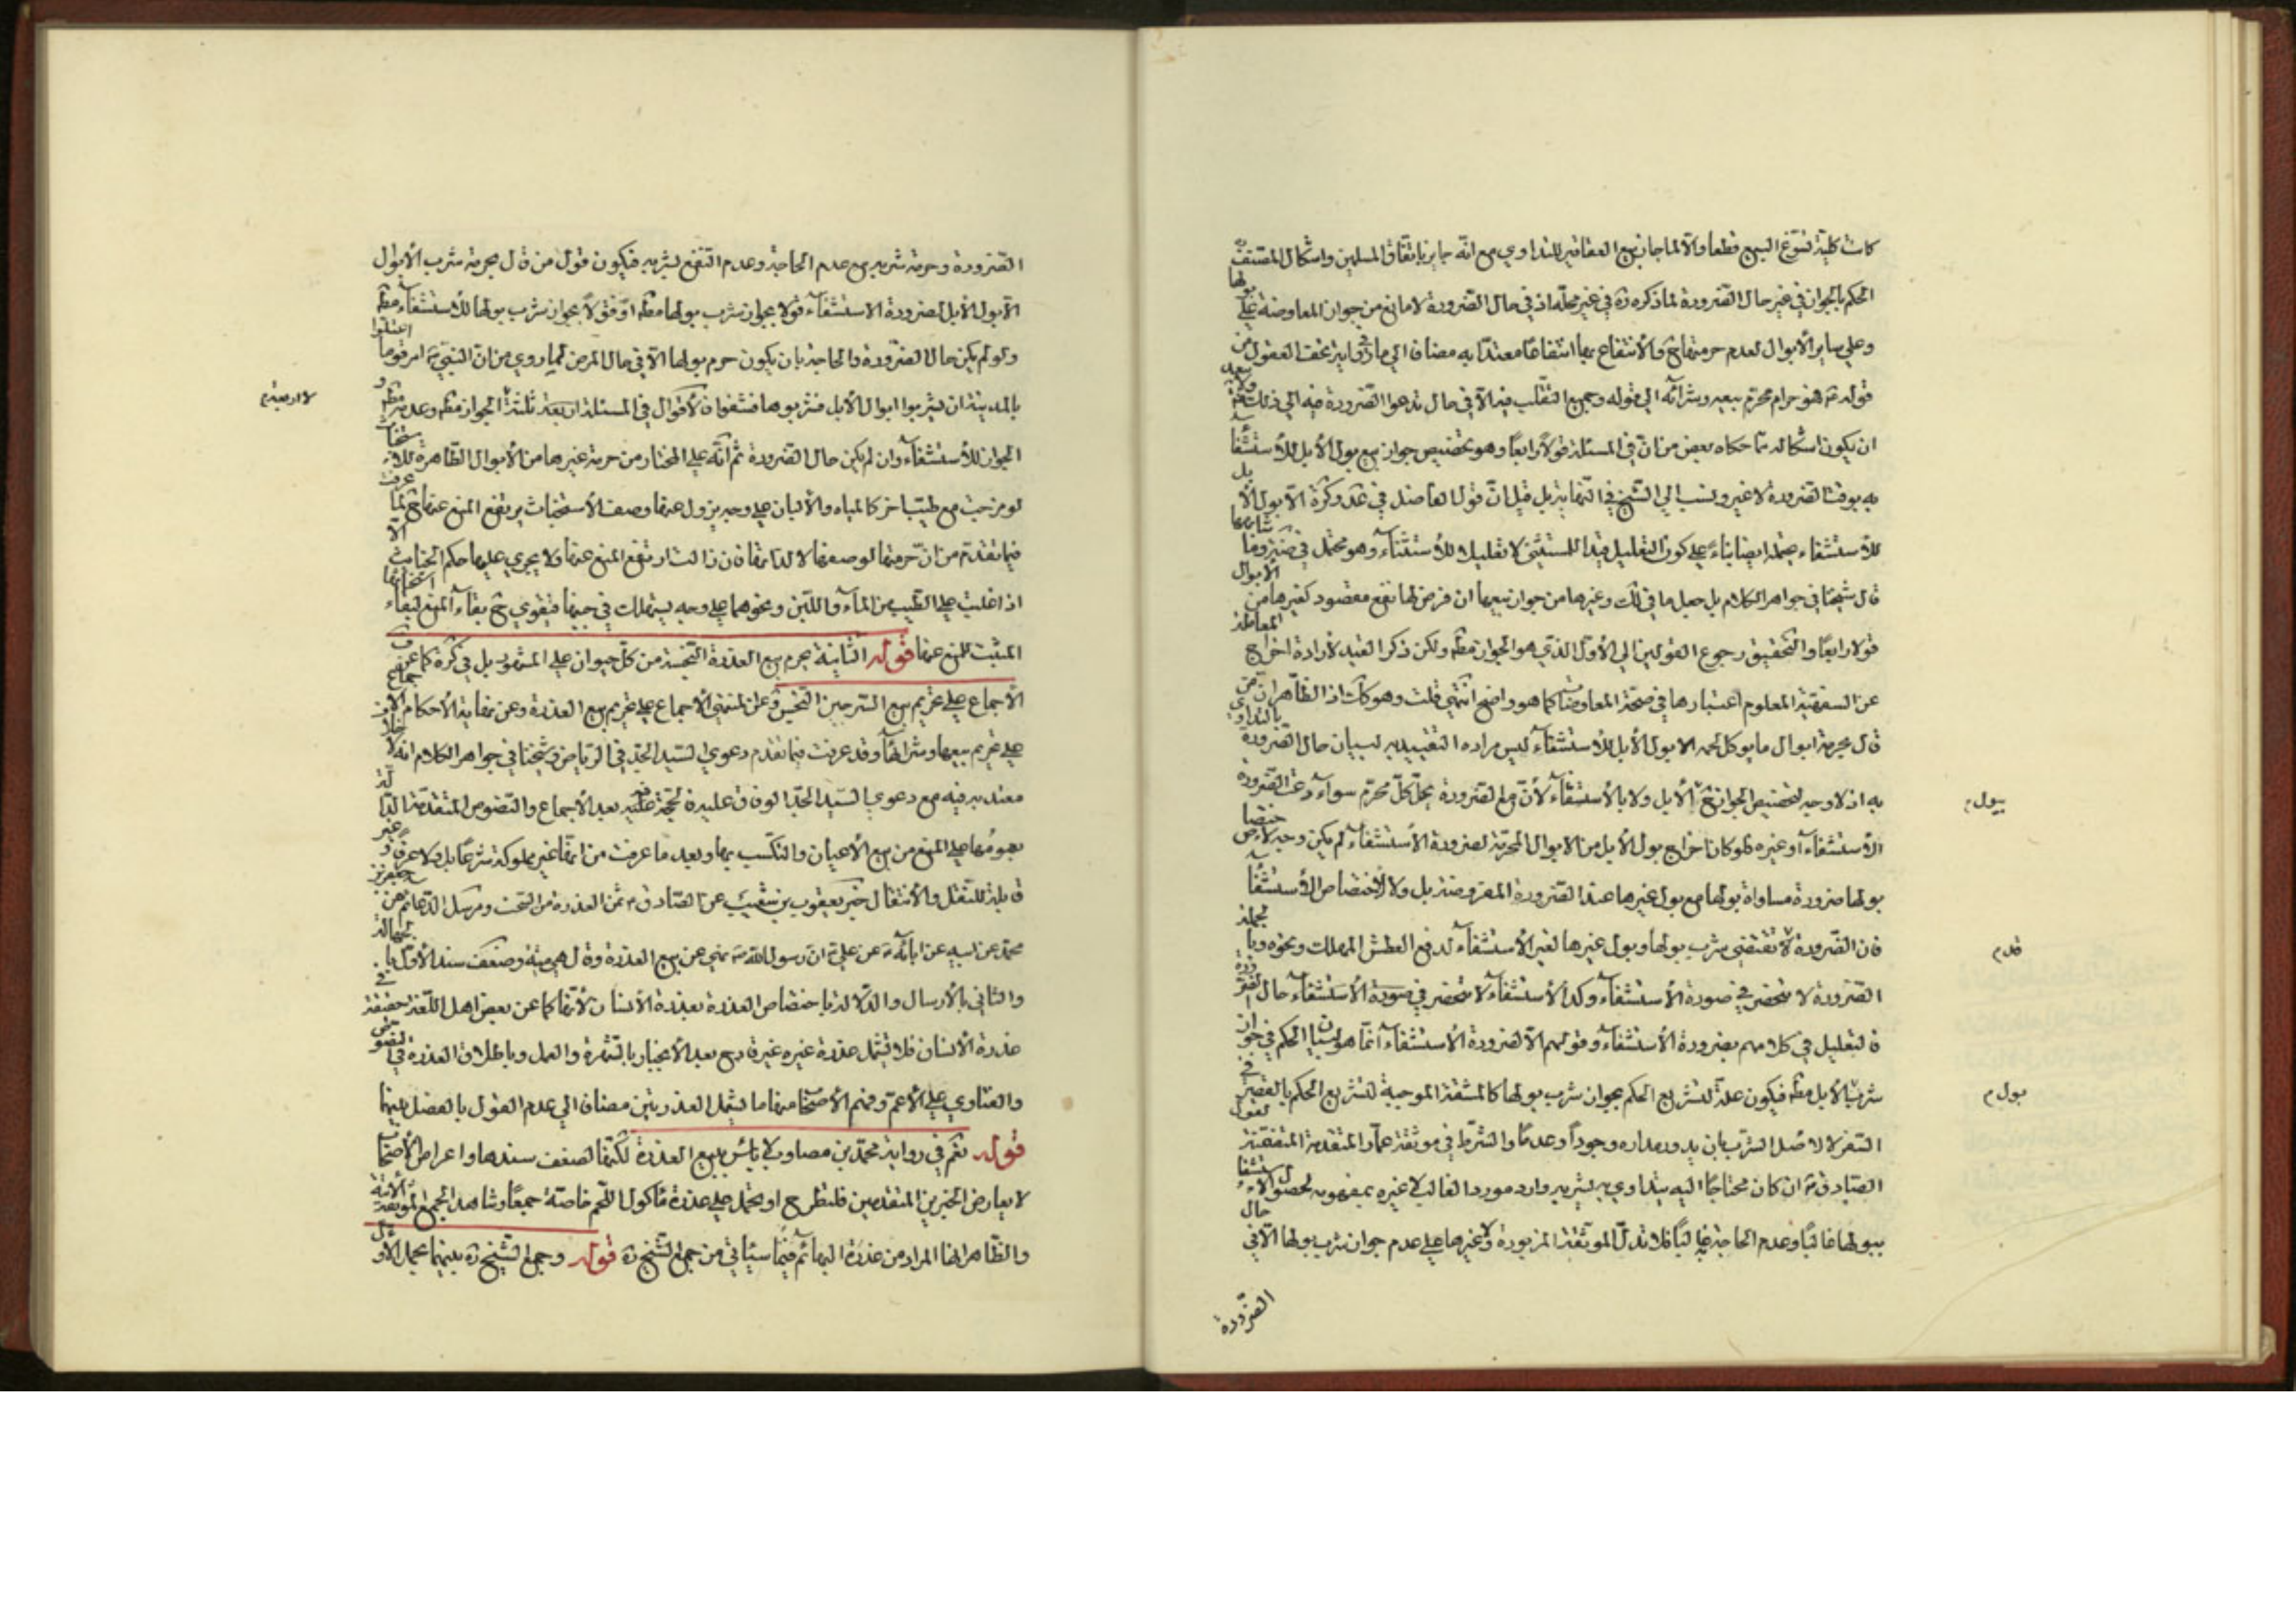 كانت كلية تسوّغ البيع قطعا والّا لما جاز بيع العقاقير للتداوي مع انّه جايز باتّفاق المسلمين واشكال المصنف
الحكم بالجواز في غير حال الضرورة لما ذكره ره في غير محلّه اذ في حال الضرورة لا مانع من جواز المعاوضة على بولها
وعلى ساير الأبوال لعدم حرمتها ح والأنتفاع بها انتفاعا معتدّا به مضاف الى ما في رواية تحف العقول من
قوله ع فهو حرام محرّم بيعه وشرائه الى قوله وجميع التقلّب فيه الّا في حال تدعوا الضرورة فيه الى ذلك
ان يكون اشكاله ممّا حكاه بعض من انّ في المسئلة قولا رابعًا وهو تخصيص جواز بيع بول الأبل للأستشفاء
به بوقت الضرورة لا غير ونسب الى الشّيخ في النّهاية بل قيل انّ قول الفاضل في عد وكرة الّا بول الأبل
للأستشفاء يحتمله ايضا بناءً على كون التعليل قيدا للمستثنى لا تعليلا للأستثناء وهو محتمل في
قال شيخنا في جواهر الكلام بل جعل ما في لك وغيرها من جواز بيعها ان فرض لها نفع مقصود كغيرها من الأبوال
قولا رابعًا والتحقيق رجوع القولين الى الأوّل الذي هو الجواز مطه ولكن ذكرا القيد لأرادة اخراج المعاملة
عن السفهيّة المعلوم اعتبارها في صحّة المعاوضات كما هو واضح انتهى قلت وهو كك اذ الظّاهر انّ من
قال بحرمة ابوال ما يوكل لحمه الا بول الأبل للأستشفاء ليس مراده التقييد به لبيان حال الضرورة
به اذ لا وجه لتخصيص الجواز ح بالأبل ولا بالأستشفاء لأنّ مع الضرورة يحلّ كلّ محرّم سواء دعت الضرورة
الأستشفاء او غيره فلو كان اخراج بول الأبل من الابوال المحرّمة لضرورة الأستشفاء لم يكن وجه لأختصاص
بولها ضرورة مساواة بولها مع بول غيرها عند الضرورة المفروضة بل ولا لأختصاص الأستشفاء
فان الضّرورة قد تقتضي شرب بولها وبول غيرها لغير الأستشفاء لدفع العطش المهلك ونحوه وبالجملة
الضّرورة لا تنحصر في صورة الأستشفاء وكذا الأستشفاء لا تنحصر في صورة الأستشفاء حال الضرورة
فالتعليل في كلامهم بضرورة الأستشفاء وقولهم الّا لضرورة الأستشفاء انّما هو لبيان الحكم في جواز
شرب بول الأبل مطه فيكون علّة لتشريع الحكم بجواز شرب بولها كالمشقّة الموجبة لتشريع الحكم بالقصر في
السّفر لا لأصل الشّرب بان يدور مداره وجوداً وعدمًا والشّرط في موثّقة عمّار المتقدمة المتضمّنة لقول
الصّادق ع ان كان محتاجًا اليه يتداوي به يشربه وارد مورد الغالب لا غيره بمفهومه لحصول الأستشفاء
ببولها غالبًا وعدم الحاجة غالبًا فلا تدلّ الموثّقة المزبورة ولا غيرها على عدم جواز شرب بولها الّا في حال
الضّرورة
ببول م
قد م
بول م
الضّرورة وحرمة شربه مع عدم الحاجة وعدم التنفع بشربه فيكون قول من قال بحرمة شرب الأبوال
الّا بول الأبل لضرورة الاستشفاء قولا بجواز شرب بولها مطه او قولا بجواز شرب بولها للأستشفاء مطه
ولو لم يكن حال الضّرورة والحاجة بان يكون حرم بولها الّا في حال المرض لما روي من انّ النّبيّ ص امر قوما اعتلوا
بالمدينة ان يشربوا ابوال الأبل فشربوها فشفوا فالأقوال في المسئلة اربعة ثلثة الجواز مطه وعدمه مطه و
الجواز للأستشفاء وان لم يكن حال الضّرورة ثم انّه على المختار من حرمة غيرها من الأبوال الظاهرة للأستخباث
لو مزجت مع طيّب اخر كالمياه والألبان على وجه يزول عنها وصف الأستخباث يرتفع المنع عنها ح لما عرفت
فيما تقدّم من انّ حرمتها لوصفها لا لذاتها فان زالت ارتفع المنع عنها ولا يجري عليها حكم الخبائث الّا
اذا غلبت على الطّيب من الماء واللّبن ونحوهما على وجه يستهلك في جنبها فيقوي ح بقاء المنع لبقاء استخباثها
المثبت للمنع عنها قوله الثّانية يحرم بيع العذرة النّجسة من كلّ حيوان على المشهور بل في كرة كما عن ف
الأجماع على تحريم بيع السّرجين النّجس وعن المنتهى الأجماع على تحريم بيع العذرة وعن نهاية الأحكام الاجماع
على تحريم بيعها وشرائها وقد عرفت فيما تقدم دعوي السّيد الجدّ في الرّياض وشيخنا في جواهر الكلام انه لا خلاف
معتد به فيه مع دعوي السّيد الجدّ الوفاق عليه فالحجّة عليه بعد الأجماع والنّصوص المتقدّمة الدّالة
بعمومها على المنع من بيع الأعيان والتكّسب بها وبعد ما عرفت من انّها غير مملوكة شرعًا بل ولا عرفًا و غير
قابلة للنّقل والأنتقال خبر يعقوب بن شعيب عن الصّادق ع ثمن العذرة من السّحت ومرسل الدّعائم عن جعفر بن
محمّد عن ابيه عن ابائه ع عن علي ع انّ رسول الله ص نهى عن بيع العذرة وقال هي ميتة وضعف سند الأوّل بالجهالة
والثّاني بالأرسال والدّلالة باختصاص العذرة بعذرة الأنسان لأنّها كما عن بعض اهل اللّغة حقيقة في
عذرة الأنسان فلا تشمل عذرة غيره غير قادح بعد الأنجبار بالشّهرة والعمل وباطلاق العذرة في النّصوص
والفتاوي على الأعمّ وفهم الأصحاب منها ما يشمل العذرتين مضاف الى عدم القول بالفصل بينهما
قوله نعم في رواية محمّد بن مصاوب لا بأس ببيع العذرة لكنّها لضعف سندها واعراض الأصحاب
لا يعارض الخبرين المتقدمين فلتطرح او يحمل على عذرة مأكول اللّحم خاصّة جمعًا وشاهد الجمع الموثّقة الأتية
والظّاهر انها المراد من عذرة البهائم فيما سيأتي من جمع الشّيخ ره قوله وجمع الشّيخ ره بينهما بحمل الأوّل